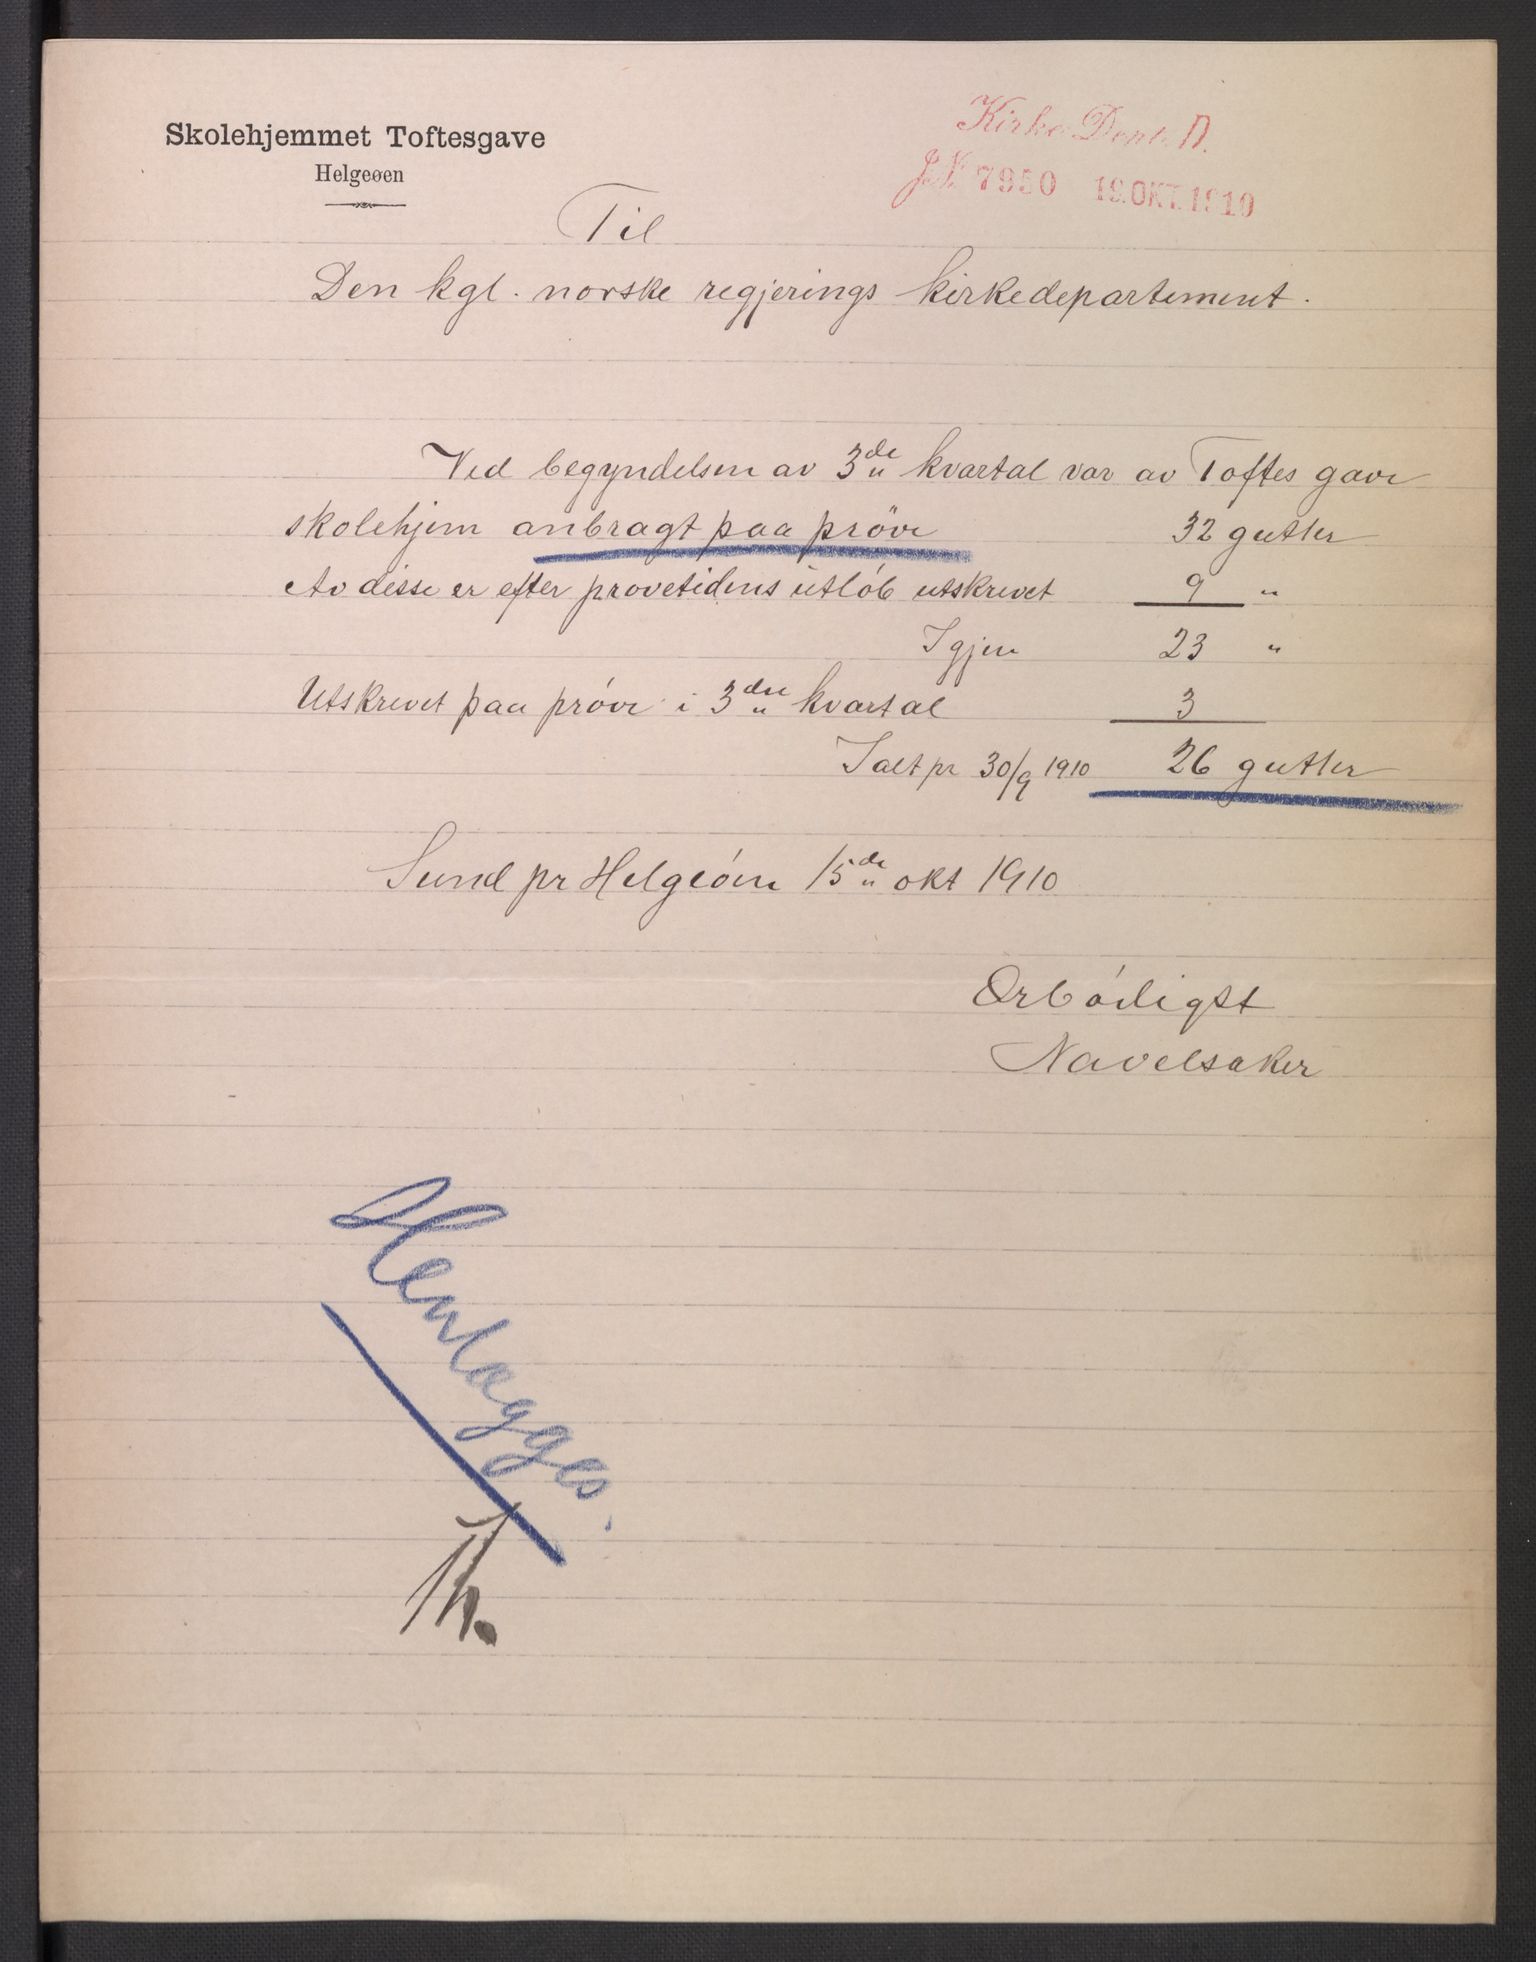 Skolehjemmet Toftesgave
Helgeøen
Kirke Dept. D.
J.N. 7950 19.OKT.1910
Til
Den kgl. norske regjerings kirkedepartement.
Ved begyndelsen av 3de kvartal var av Toftes gave
skolehjem anbragt paa pröve 32 gutter
Av disse er efter prøvetidens utløb utskrevet 9 "
Igjen 23 "
Utskrevet paa prøve i 3die kvartal 3
Ialt pr 30/9 1910 26 gutter
Sund pr Helgeøen 15de okt 1910
Ærbødigst
Navelsaker
Henlægges.
Th.